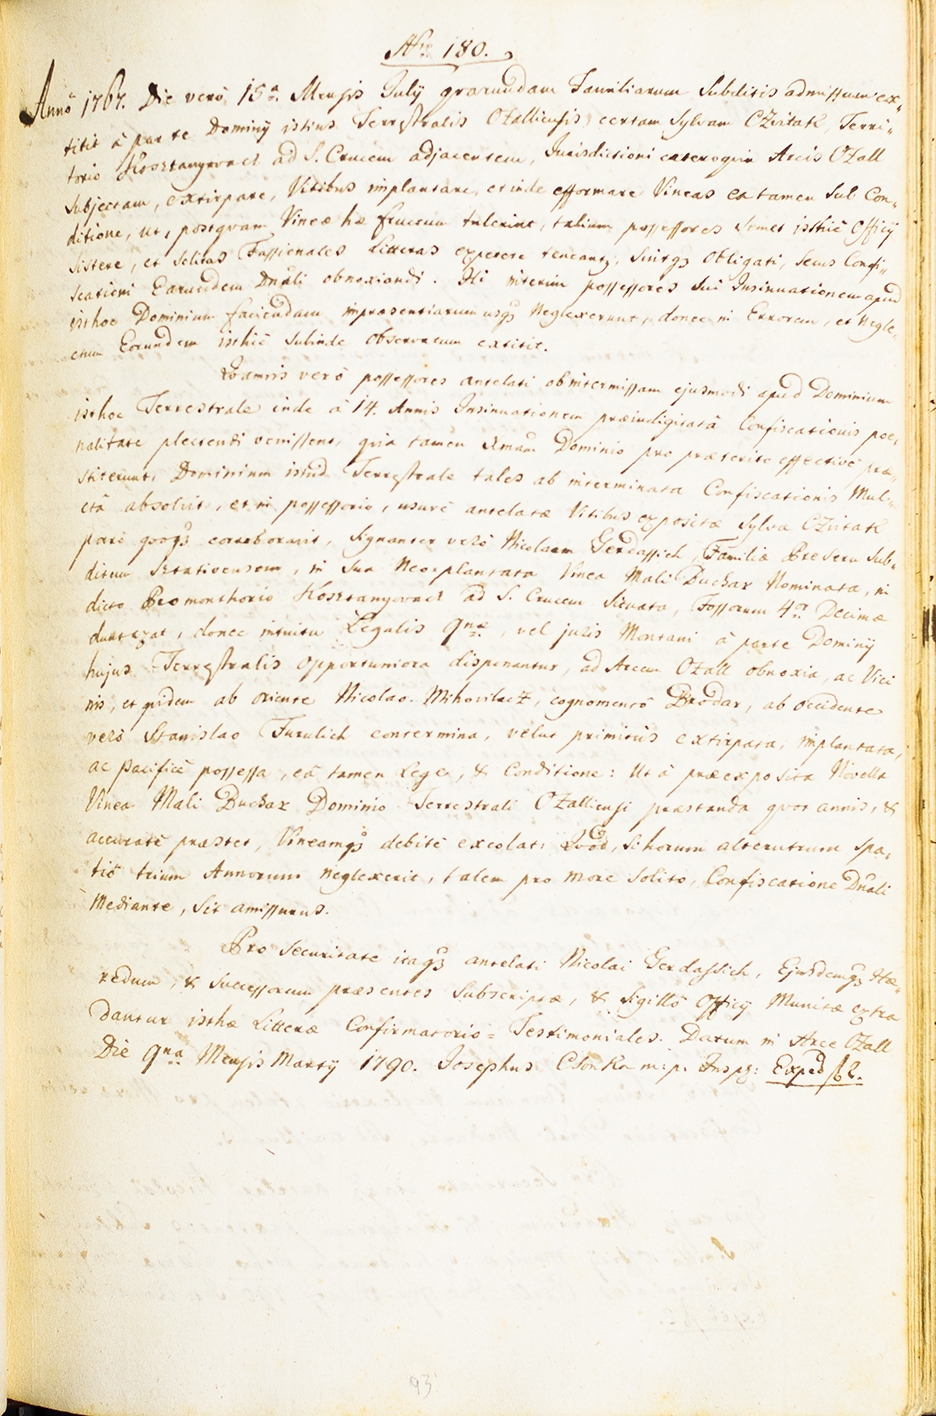 Nro 180.
Anno 1767. Die verò 15a Mensis July quarundam Familiarum Subditis admissum ex-
titit à parte Dominy istius Terrestralis Ozalliensis, certam Sylvam Czvitak Terri-
torio Kosztanyevacz ad S. Crucem adjacentem, Jurisdictioni caeteroquin Arcis Ozall
Subjectam, extirpare, Vitibus implantare, et inde efformare Vineas ea tamen sub Con-
ditione, ut, postquam Vineae hae fructum tulerint, talium possessores Semet isthic Officy
Sistere, et Solitas Fassionales Litteras expetere teneantur, Sintqz obligati, secus Confi-
scationi Earundem Dnali obnoxiandi. Hi interim possessores Sui Insinuationem apud
isthoc Dominium faciendam impraesentiarum usqz Neglexerunt, donec in Errorem, et Negle-
ctum Eorundem isthic Subinde observatum extitit.
Quamvis verò possessores antelati ob intermissam ejusmodi apud Dominium
isthoc Terrestrale inde à 14. Annis Insinuationem praeindigitatâ Confiscationis poe-
nalitate plectendi venissent, quia tamen Xmam Dominio pro praeterito effectivè prae-
stiterunt, Dominium istud Terrestrale tales ab interminata Confiscationis Mul-
ctâ absolvit, et in possessorio, usuve antelatae Vitibus expositae Sylvae Czvitak
parte quoqz corroboravit, Signanter verò Nicolaum Gerdassich, Familiae Preseru Sub-
ditum, in Sua Neoxplantata Vinea Mali Buchax Nominata, in
dicto Promonthorio Kosztanyevacz ad S. Crucem Situata, Fossorum 4or Decimae
duntaxat, donec intuitu Legalis 9nae, vel juris Montani à parte Dominy
hujus Terrestralis opportuniora disponantur, ad Arcem Ozall obnoxia, ac Vici
nis, et quidem ab oriente Nicolao Mihovilacz, cognomento Brodar, ab occidente
verò Stanislao Furulich contermina, velut primitùs extirpata, implantata,
ac pacificè possessa, eâ tamen Lege, & Conditione: Ut à praeexposita Novella
Vinea Mali Buchax Dominio Terrestrali Ozalliensi praestanda quot annis, &
accuratè praestet, Vineamqz debitè excolat, Quòd, Si horum alterutrum Spa-
tiô trium Annorum neglexerit, talem pro more Solito, Confiscatione Dnali
Mediante, Sit amissurus.
Pro Securitate itaqz antelati Nicolai Gerdassich, Ejusdemqz Hae-
redum, & Successorum praesentes Subscriptae, & Sigillô Officy Munitae extra
dantur isthae Litterae Confirmatorio-Testimoniales. Datum in Arce Ozall
Die 9na Mensis Marty 1790. Josephus Csonka m:p: Insp: Exped
93